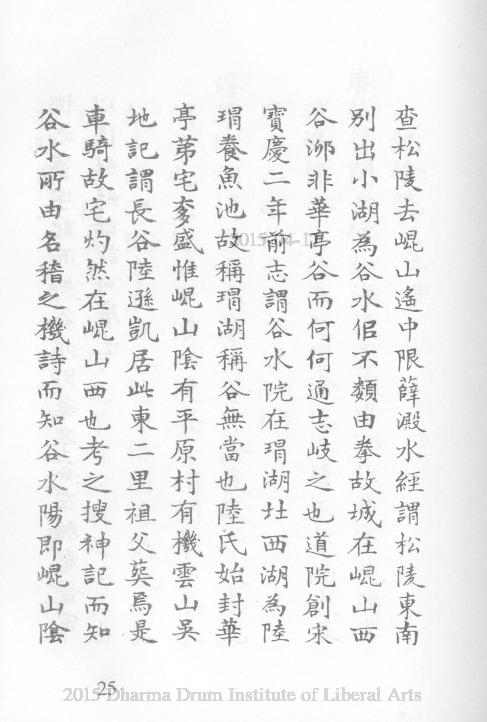 查松陵去崐山遙中限薛澱水經謂松陵東南
別出小湖為谷水侣不𩔖由拳故城在崐山西
谷泖非華亭谷而何何通志岐之也道院創宋
寶慶二年前志謂谷水院在瑁湖圵西湖為陸
瑁養魚池故稱瑁湖稱谷無當也陸氏始封華
亭苐宅夛盛惟崐山陰有平原村有機雲山吳
地記謂長谷陸遜凱居此東二里祖父葬焉是
車騎故宅灼然在崐山西也考之搜神記而知
谷水所由名稽之機詩而知谷水陽即崐山陰
25
2015-04-1
2015 Dharma Drum Institute of Liberal Arts